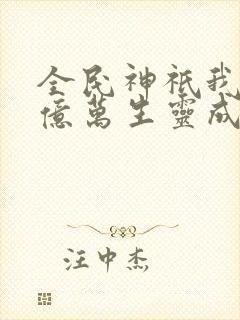 全民神祇我
億萬生靈成
汪中杰